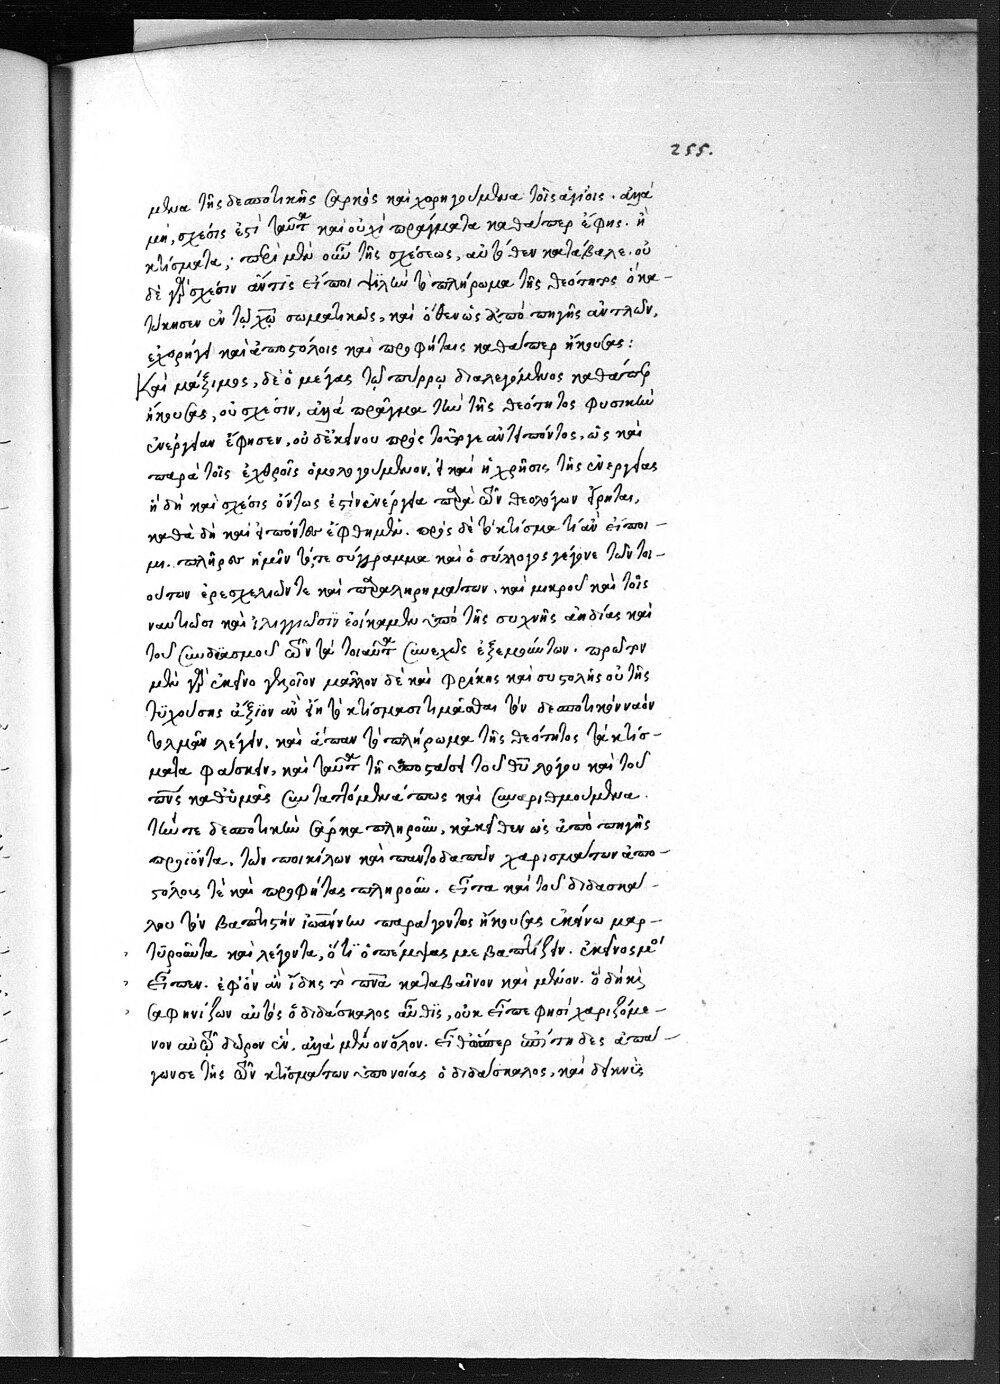 255.
μενα τῆς δεσποτικῆς σαρκὸς καὶ χορηγούμενα τοῖς ἁγίοις. ἀλλὰ
μὴ, σχέσις ἐστὶ ταῦτα καὶ οὐχὶ πράγματα καθάπερ ἔφης. ἢ
κτίσματα; περὶ μὲν οὖν τῆς σχέσεως, αὐτόθεν κατάβαλε. οὐ
δὲ γὰρ σχέσιν ἄν τις εἴποι ψιλὴν τὸ πλήρωμα τῆς θεότητος ὃ κα-
τώκησεν ἐν τῷ χῷ σωματικῶς, καὶ ὅθεν ὡς ἀπὸ πηγῆς ἀντλῶν,
ἐχορήγει καὶ ἀποστόλοις καὶ προφήταις καθάπερ ἤκουσας:
Καὶ μάξιμος, δὲ ὁ μέγας τῷ πύρρῳ διαλεγόμενος καθάπερ
ἤκουσας, οὐ σχέσιν, ἀλλὰ πρᾶγμα τὴν τῆς θεότητος φυσικὴν
ἐνέργειαν ἔφησεν, οὐδ' ἐκείνου πρὸς τοῦργε ἀντειπόντος, ὡς καὶ
παρὰ τοῖς ἐχθροῖς ὁμολογούμενον. εἰ καὶ ἡ χρῆσις τῆς ἐνεργείας
ἤδη καὶ σχέσις ὄντως ἐστὶν ἐνέργεια παρὰ τῶν θεολόγων εἴρηται,
καθὰ δὴ καὶ εἰπόντες ἔφθημεν. πρὸς δὲ τὸ κτίσμα τί ἂν εἴποι-
μι. πλῆρες ἡμῖν τό,τε σύγγραμμα καὶ ὁ σύλλογος γέγονε τῶν τοι-
ούτων ἐρεσχελιῶν τε καὶ παραληρημάτων, καὶ μικροῦ καὶ τοῖς
ναυτιῶσι καὶ ἰλιγγιῶσιν ἐοίκαμεν ὑπὸ τῆς συχνῆς ἀηδίας καὶ
τοῦ συνδυασμοῦ τῶν τὰ τοιαῦτα συνεχῶς ἐξεμούντων. πρῶτον
μὲν γὰρ ἐκεῖνο γελοῖον μᾶλλον δὲ καὶ φρίκης καὶ συστολῆς οὐ τῆς
τυχούσης ἄξιον ἂν εἴη τὸ κτίσμασι τιμᾶσθαι τὸν δεσποτικὸν ναὸν
τολμᾶν λέγειν. καὶ ἅπαν τὸ πλήρωμα τῆς θεότητος τὰ κτίσ-
ματα φάσκειν, καὶ ταῦτα τῇ ὑποστάσει τοῦ θυ λόγου καὶ τοῦ
πνς καθ' ὑμᾶς συνταττόμενά πως καὶ συναριθμούμενα.
τήν τε δεσποτικὴν σάρκα πληροῦν, κἀκεῖθεν ὡς ἀπὸ πηγῆς
προϊόντα, τῶν ποικίλων καὶ παντοδαπῶν χαρισμάτων ἀπο-
στόλους τὲ καὶ προφήτας πληροῦν. εἶτα καὶ τοῦ διδασκά-
λου τὸν βαπτιστὴν ἰωάννην παράγοντος ἤκουσας ἐκείνω μαρ-
τυροῦντα καὶ λέγοντα, ὅτι ὁ πέμψας με βαπτίζειν. ἐκεῖνός μοι
εἶπεν. ἐφ' ὃν ἂν ἴδης τὸ πνα καταβαῖνον καὶ μένον. ὃ δὴ καὶ
σαφηνίζων αὐτὸς ὁ διδάσκαλος εὐθὺς, οὐκ εἶπε φησὶ χαριζόμε-
νον αὐτῷ δῶρον ἓν. ἀλλὰ μένον ὅλον. εἶθ' ὥσπερ ἐπίτηδες ἀπά-
γων σε τῆς τῶν κτισμάτων ὑπονοίας ὁ διδάσκαλος, καὶ διηνεκὲς